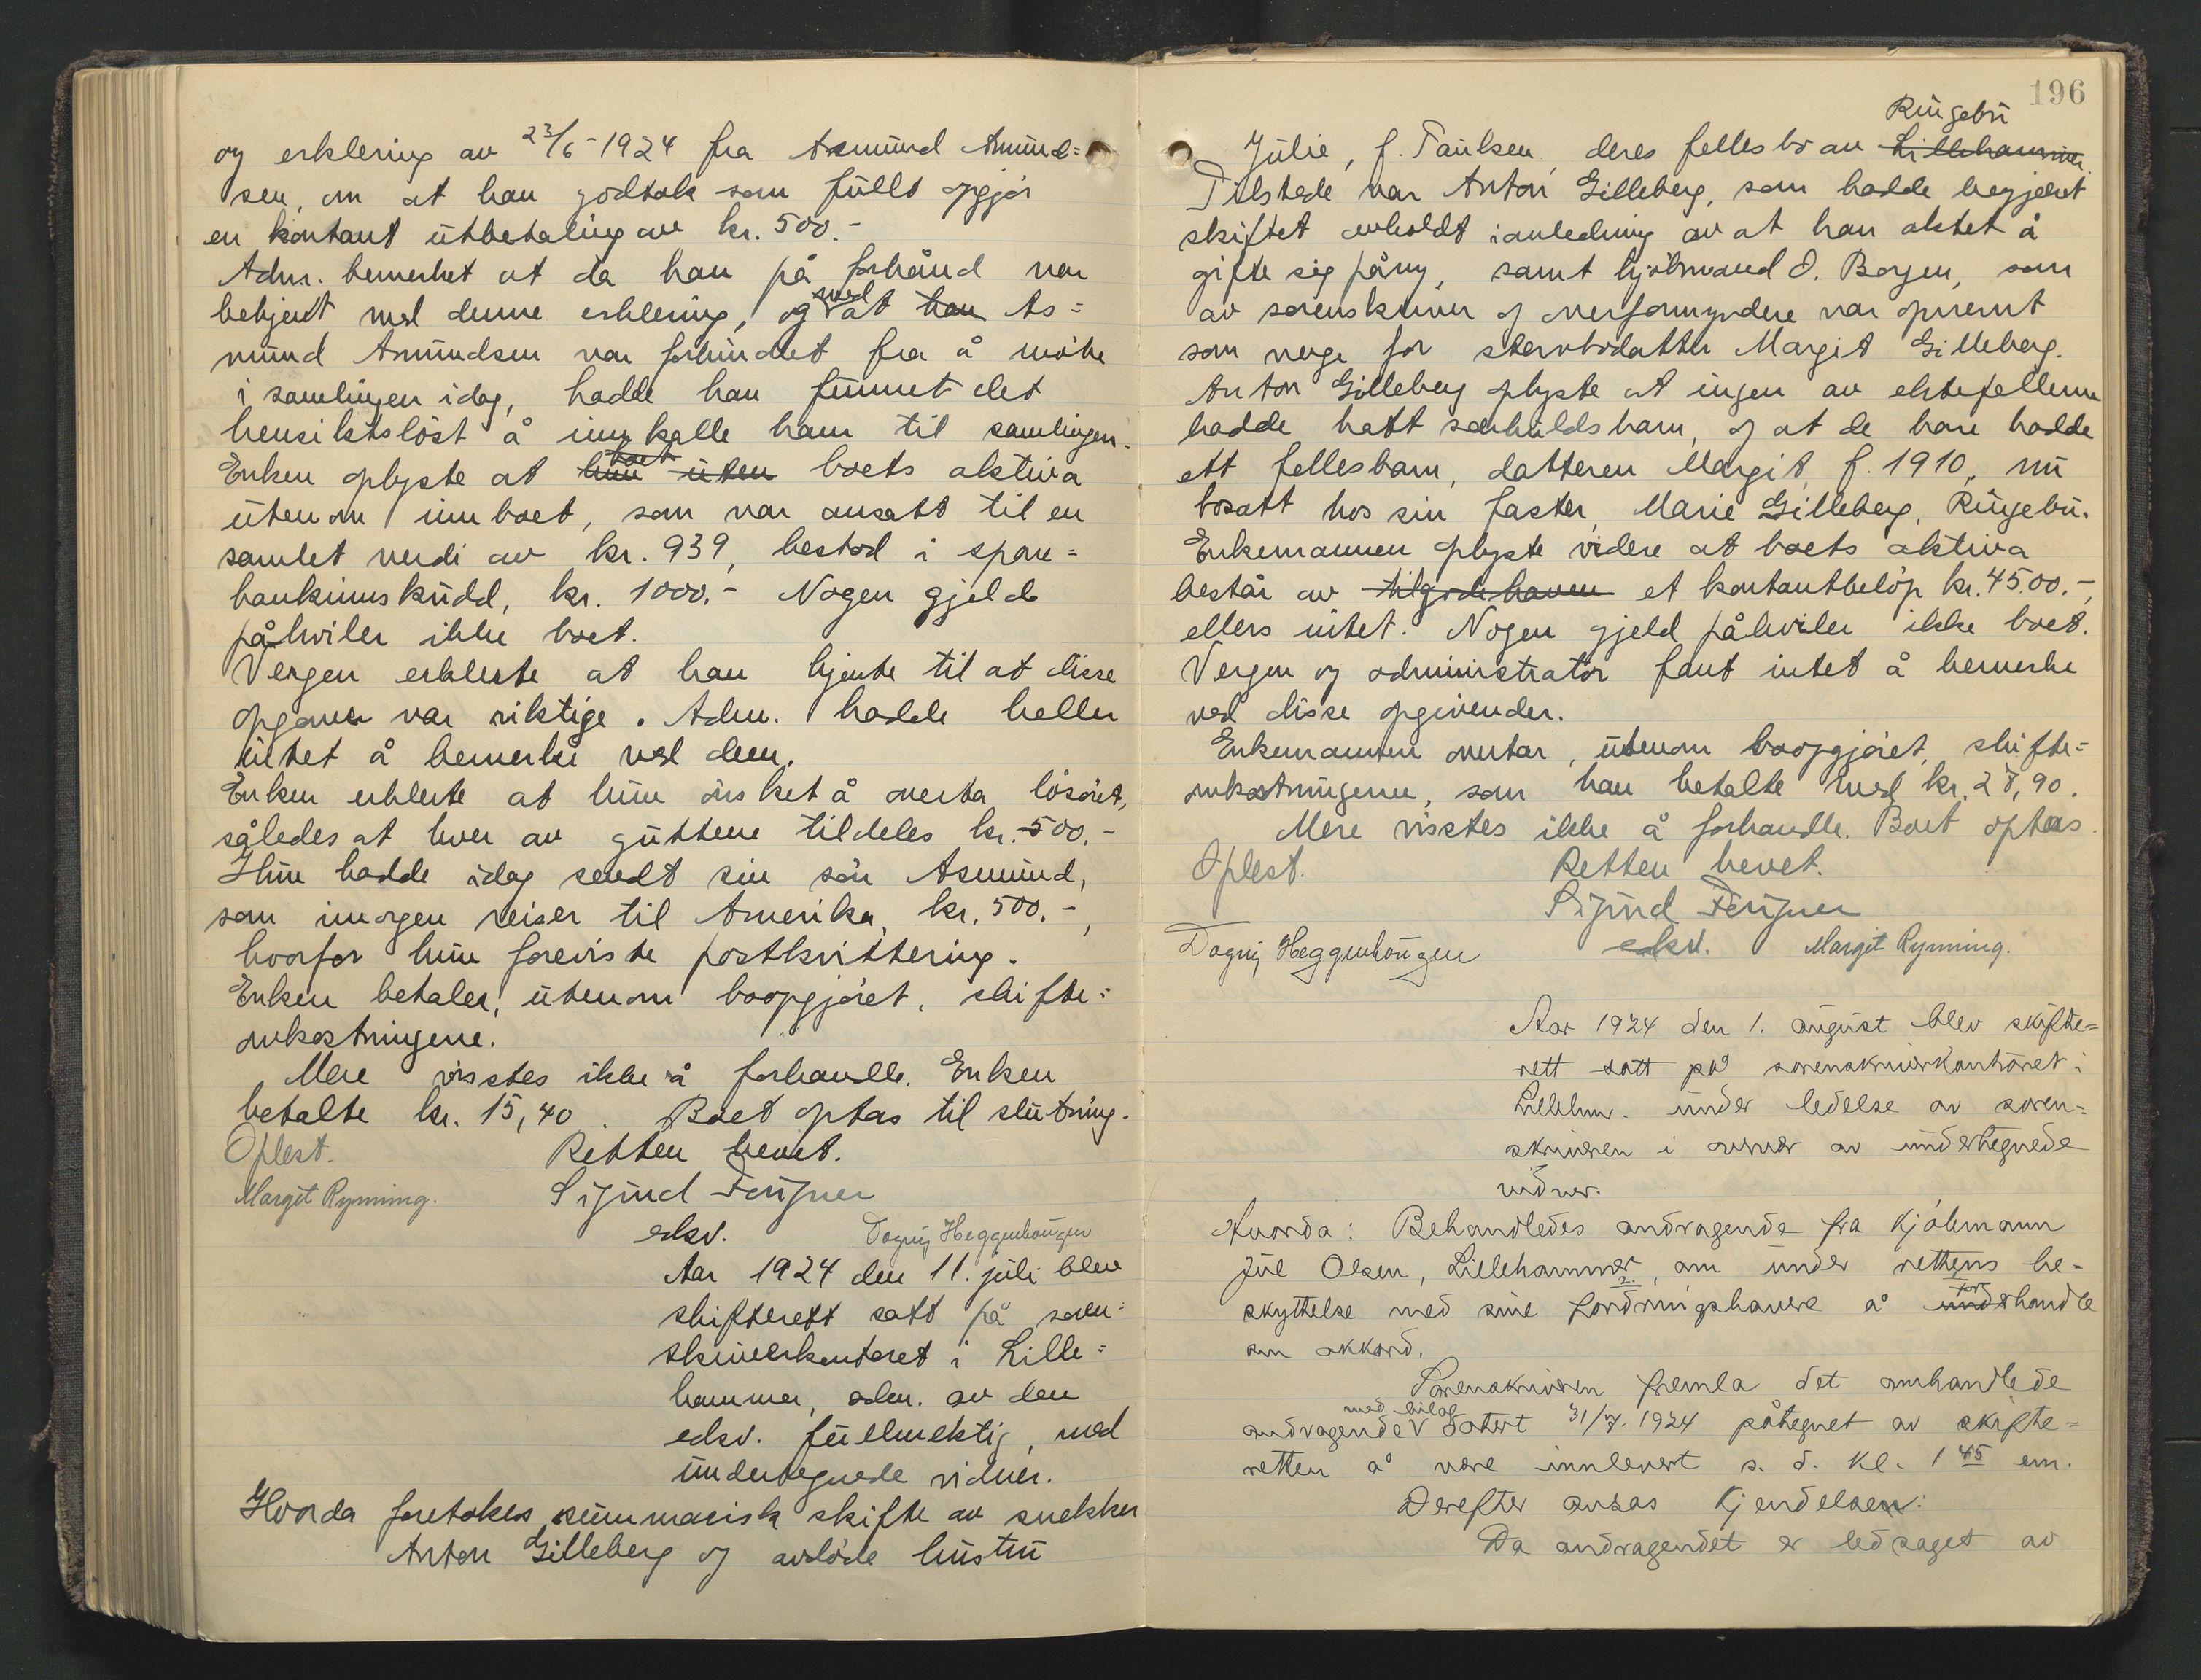 og erklering av 23/6-1924 fra Asmund Amund=
sen, om at han godtok som fullt opgjör
en kontant utbetaling av kr. 500.-
Adm. bemerket at da han på forhånd var
bekjent med denne erklering, og med at han As=
mund Amundsen var forhindret fra å möte
i samlingen idag, hadde han funnet det
hensiktslöst å innkalle ham til samlingen.
Enken oplyste at hun uten boet boets aktiva
utenom innboet, som var ansatt til en
samlet verdi av kr. 939, bestod i spare=
bankinnskudd, kr. 1000.- Nogen gjeld
påhviler ikke boet.
Vergen erklerte at han kjente til at disse
opgaver var riktige. Adm. hadde heller
intet å bemerke ved dem.
Enken erklerte at hun önsket å overta lösöret,
således at hver av guttene tildeles kr. 500.-
Hun hadde idag sendt sin sön Asmund,
som imorgen reiser til Amerika, kr. 500.-,
hvorfor hun foreviste postkvittering.
Enken betaler, utenom boopgjöret, skifte=
omkostningene.
Mere visstes ikke å forhandle. Enken
betalte kr. 15,40. Boet optas til slutning.
Oplest. Retten hevet.
Margit Rynning. Sigurd
edsv. Dagny Heggenhougen
Aar 1924 den 11. juli blev
skifterett satt på soren=
skriverkontoret i Lille=
hammer, adm. av den
edsv. fullmektig, med
undertegnede vidner.
Hvorda foretokes summarisk skifte av snekker
Anton Gilleberg og avdöde hustru
196
Ringebu
Julie, f. Paulsen, deres fellesbo av Lillehammer.
Tilstede var Anton Gilleberg, som hadde begjæret
skiftet avholdt i anledning av at han aktet å
gifte sig påny, samt hjölmand O. Borgen, som
av sorenskriver og overformyndere var opnevnt
som verge for stervbodatter Margit Gilleberg.
Anton Gilleberg oplyste at ingen av ektefellerne
hadde hatt særkuldsbarn, og at de bare hadde
ett fellesbarn, datteren Margit, f. 1910, nu
bosatt hos sin faster, Marie Gilleberg, Ringebu.
Enkemannen oplyste videre at boets aktiva
består av tilgodehaven et kontantbelöp kr. 4500.-,
ellers intet. Nogen gjeld påhviler ikke boet.
Vergen og administrator fant intet å bemerke
ved disse opgivender.
Enkemannen overtar, utenom boopgjöret, skifte=
omkostningene, som han betalte med kr. 28,90.
Mere visstes ikke å forhandle. Boet optas.
Oplest. Retten hevet.
Sigurd
Dagny Heggenhougen edsv. Margit Rynning.
Aar 1924 den 1. august blev skifte=
rett satt på sorenskriverkontoret i
Lillehmr. under ledelse av soren=
skriveren i nærvær av undertegnede
vidner.
Hvorda: Behandledes andragende fra kjöbmann
Jul Olsen, Lillehammer, om under rettens be-
skyttelse med sine fordringshavere å underhandle for
om akkord.
Sorenskriveren fremla det omhandlede
andragende med bilag datert 31/7. 1924 påtegnet av skifte=
retten å være innlevert s. d. kl. 1 45 em.
Derefter avsas kjendelsen:
Da andragendet er ledsaget av